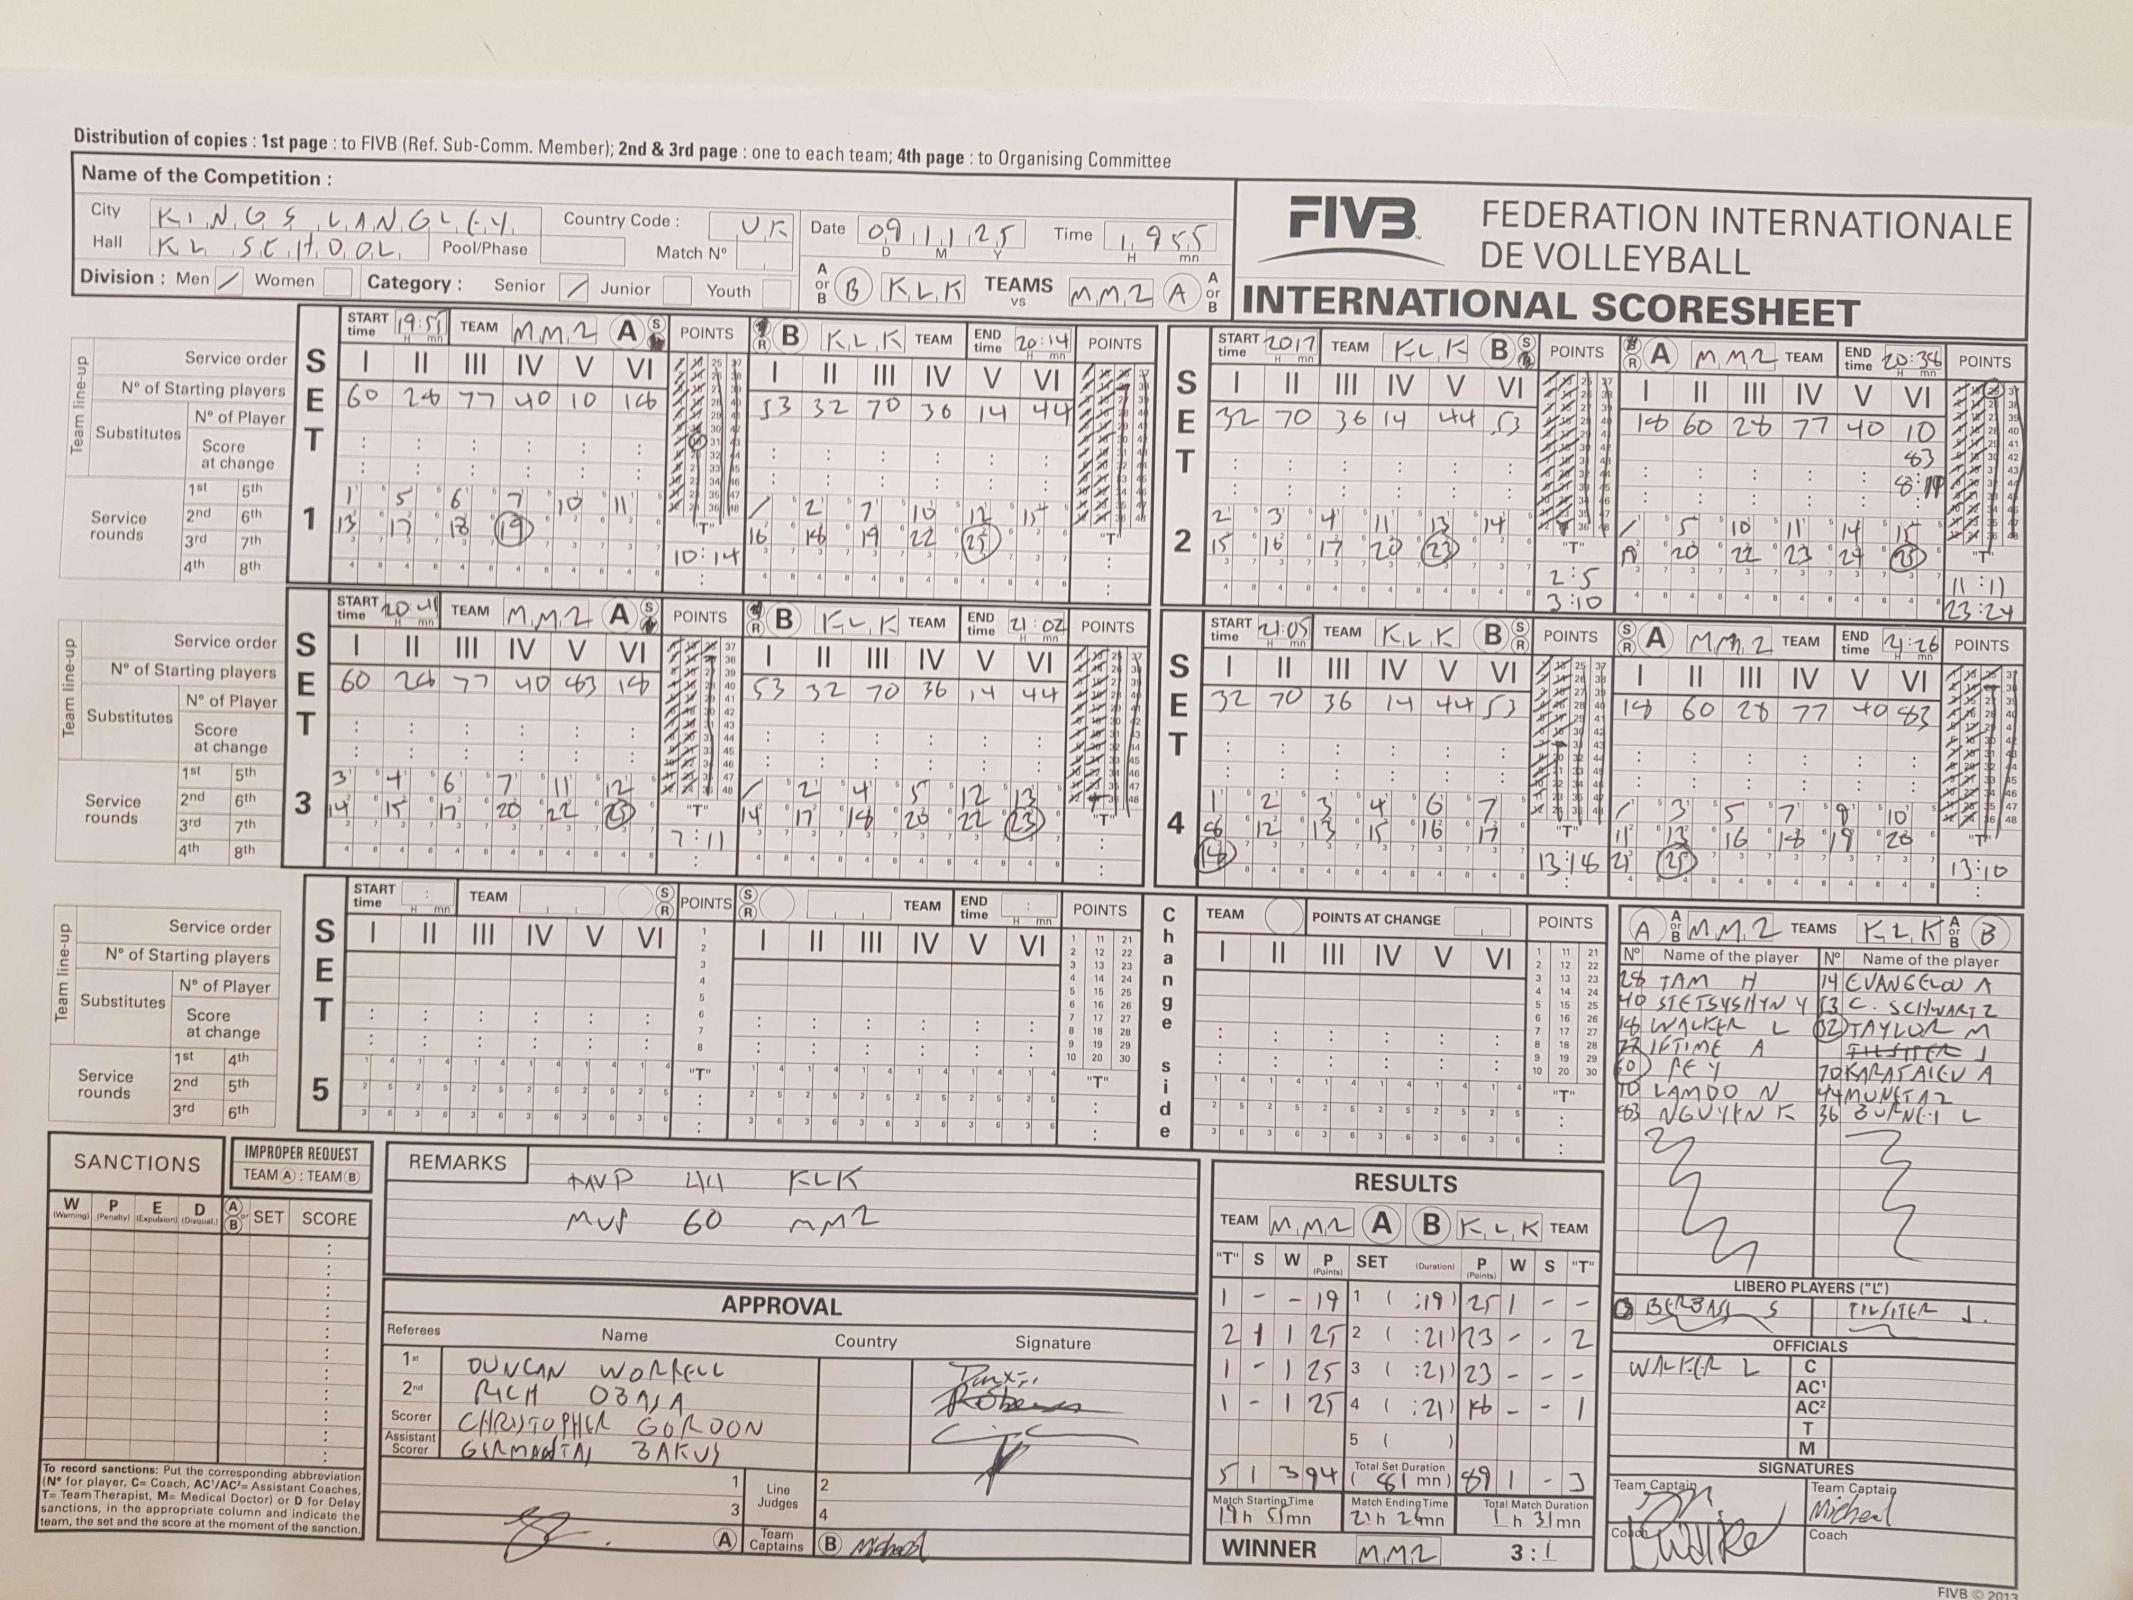 Distribution of copies : 1st page : to FIVB (Ref. Sub-Comm. Member); 2nd & 3rd page : one to each team; 4th page : to Organising Committee
Name of the Competition :
City KINGS LANGLEY Country Code : UK Date 09 11 25 Time 1955
D M Y H mn
Hall KL SCHOOL Pool/Phase Match Nº
Division : Men / Women Category : Senior / Junior Youth
A or B B KLK TEAMS vs MM2 A A or B
FIVB FEDERATION INTERNATIONALE
DE VOLLEYBALL
INTERNATIONAL SCORESHEET
SET 1
START time 19:55 TEAM MM2 A S POINTS R B KLK TEAM END time 20:14 POINTS
Service order I II III IV V VI I II III IV V VI
Nº of Starting players 60 28 77 40 10 18 53 32 70 36 14 44
Team line-up
Substitutes Nº of Player
Score at change
Service rounds
1st 5th 1 5 6 7 10 11 / 2 7 10 12 15
2nd 6th 13 17 18 19 16 18 19 22 25
3rd 7th
4th 8th
"T" 10:14 "T"
SET 2
START time 20 17 TEAM KLK B S POINTS R A MM2 TEAM END time 20:38 POINTS
I II III IV V VI I II III IV V VI
32 70 36 14 44 53 18 60 28 77 40 10
83
2 3 4 11 13 14 / 5 10 11 14 15
15 16 17 20 23 20 22 23 24 25
"T" 2:5 3:10 "T" 11:11 23:24
SET 3
START time 20:41 TEAM MM2 A S POINTS R B KLK TEAM END time 21:02 POINTS
Service order I II III IV V VI I II III IV V VI
Nº of Starting players 60 28 77 40 83 18 53 32 70 36 14 44
Team line-up
Substitutes Nº of Player
Score at change
Service rounds
1st 5th 3 4 6 7 11 12 / 2 4 5 12 13
2nd 6th 14 15 17 20 22 25 14 17 18 20 22 23
3rd 7th
4th 8th
"T" 7:11 "T"
SET 4
START time 21:05 TEAM KLK B S R POINTS S R A MM2 TEAM END time 21:26 POINTS
I II III IV V VI I II III IV V VI
32 70 36 14 44 53 18 60 28 77 40 83
1 2 3 4 6 7 / 3 5 7 9 10
8 12 13 15 16 17 11 13 16 18 19 20
18 21 25
"T" 13:18 "T" 13:10
SET 5
START time H mn TEAM S R POINTS S R TEAM END time H mn POINTS Change side TEAM POINTS AT CHANGE POINTS
Service order I II III IV V VI I II III IV V VI I II III IV V VI
Nº of Starting players
Team line-up
Substitutes Nº of Player
Score at change
Service rounds
1st 4th
2nd 5th
3rd 6th
"T" "T" "T"
A A or B MM2 TEAMS KLK A or B B
Nº Name of the player Nº Name of the player
28 TAM H 14 EVANGELOU A
40 STETSYSHYN Y 53 C. SCHWARTZ
18 WALKER L 32 TAYLOR M
77 IFTIME A TILSITER J
60 PE Y 70 KARATAIEV A
10 LAMDO N 44 MUNETAZ
83 NGUYEN K 36 L
LIBERO PLAYERS ("L")
S TILSITER J.
OFFICIALS
WALKER L C
AC¹
AC²
T
M
SIGNATURES
Team Captain Team Captain
Micheal
Coach Coach
SANCTIONS
IMPROPER REQUEST
TEAM A : TEAM B
W (Warning) P (Penalty) E (Expulsion) D (Disqual.) A or B SET SCORE
To record sanctions: Put the corresponding abbreviation
(Nº for player, C= Coach, AC¹/AC²= Assistant Coaches,
T= Team Therapist, M= Medical Doctor) or D for Delay
sanctions, in the appropriate column and indicate the
team, the set and the score at the moment of the sanction.
REMARKS
MVP 44 KLK
MVP 60 MM2
APPROVAL
Referees Name Country Signature
1st DUNCAN WORRELL
2nd RICH OBASA
Scorer CHRISTOPHER GORDON
Assistant Scorer BAKUS
1 Line Judges 2
3 4
A Team Captains B Micheal
RESULTS
TEAM MM2 A B KLK TEAM
"T" S W P (Points) SET (Duration) P (Points) W S "T"
1 - - 19 1 ( :19 ) 25 1 - -
2 1 1 25 2 ( :21 ) 23 - - 2
1 - 1 25 3 ( :21 ) 23 - - -
1 - 1 25 4 ( :21 ) 18 - - 1
5 ( )
5 1 3 94 Total Set Duration ( 81 mn) 89 1 - 3
Match Starting Time Match Ending Time Total Match Duration
19h 55mn 21h 26mn 1h 31mn
WINNER MM2 3 : 1
FIVB © 2013